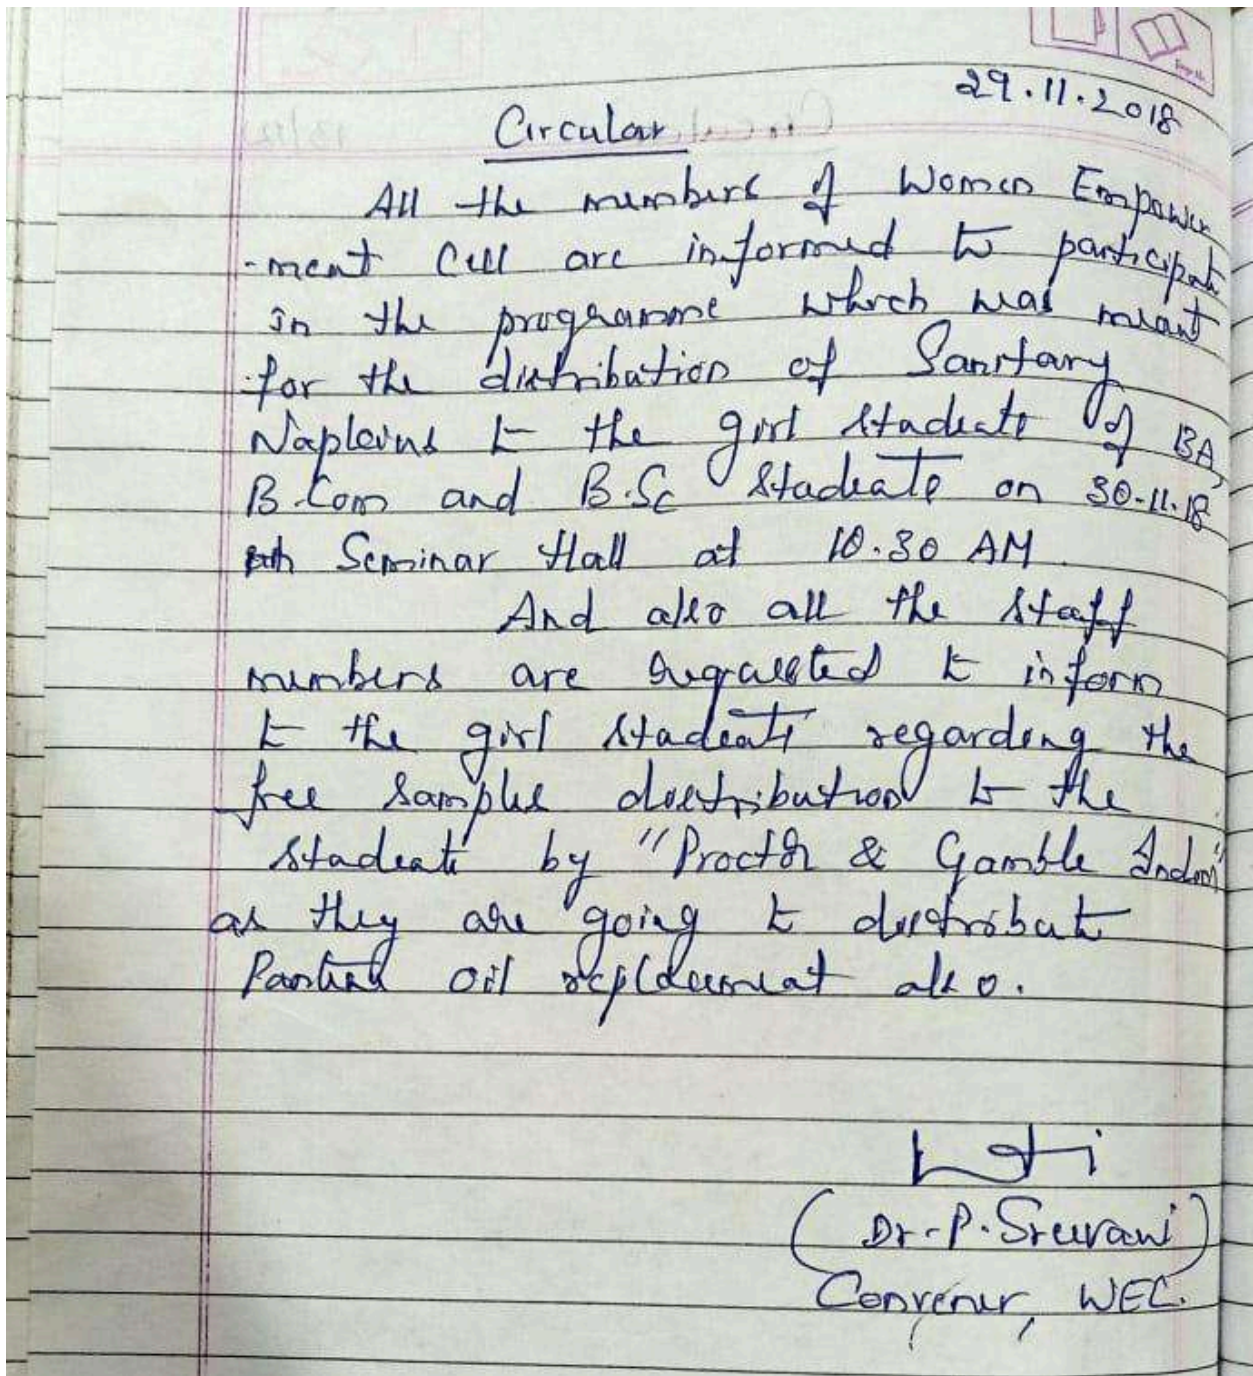 29.11.2018
Circular
All the members of Women Empower
-ment Cell are informed to participate
in the programme which was meant
for the distribution of Sanitary
Napkins to the girl students of BA,
B.Com and B.Sc students on 30-11-18
Seminar Hall at 10.30 AM
And also all the staff
members are requested to inform
to the girl students regarding the
free samples distribution to the
students by "Procter & Gamble India"
as they are going to distribute
Pantene oil replacement also.
(Dr. P. Sreevani)
Convener, WEC.